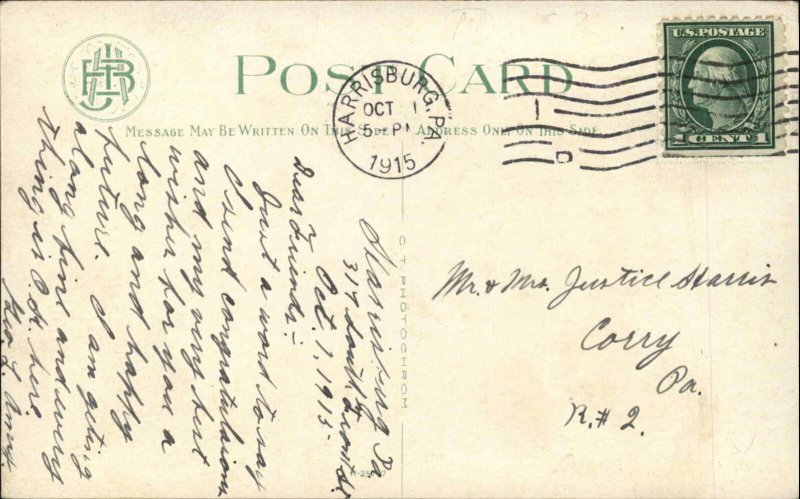 POST CARD
MESSAGE MAY BE WRITTEN ON THIS SIDE
ADDRESS ONLY ON THIS SIDE
HARRISBURG, PA.
OCT 1
5 - PM
1915
U.S. POSTAGE
1 CENT 1
Harrisburg Pa
317 South Front St.
Oct. 1, 1915-
Dear Friends:-
Just a word to say
I send congratulaions
and my very best
wishes for you a
long and happy
future. I am geting
along fine and every
thing is O.K. here
Geo. L.
Mr. & Mrs. Justice Harris
Corry
Pa.
R. # 2.
C T PHOTOCHROM